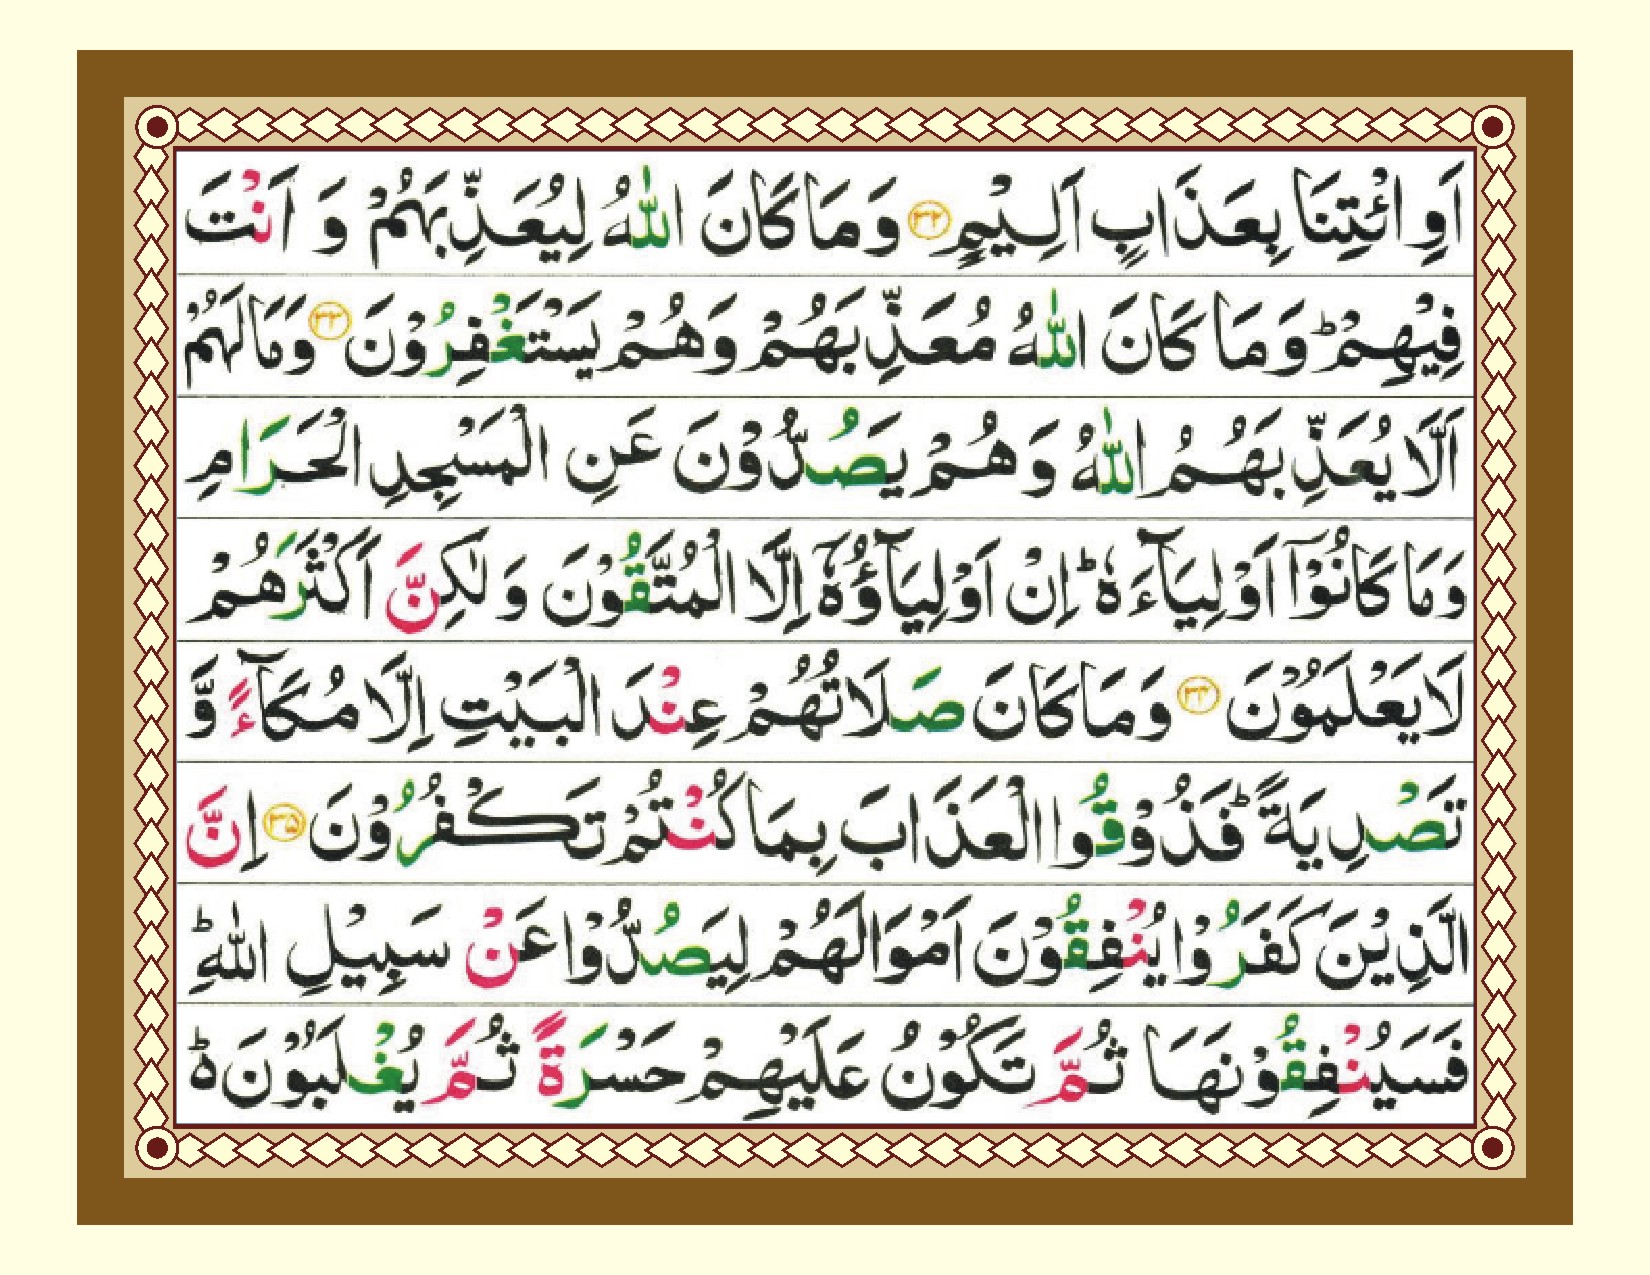 اَوِ ائْتِنَا بِعَذَابٍ اَلِيْمٍ ﴿۳۲﴾ وَمَا كَانَ اللّٰهُ لِيُعَذِّبَهُمْ وَ اَنْتَ
فِيْهِمْ ؕ وَمَا كَانَ اللّٰهُ مُعَذِّبَهُمْ وَهُمْ يَسْتَغْفِرُوْنَ ﴿۳۳﴾ وَمَا لَهُمْ
اَلَّا يُعَذِّبَهُمُ اللّٰهُ وَهُمْ يَصُدُّوْنَ عَنِ الْمَسْجِدِ الْحَرَامِ
وَمَا كَانُوْٓا اَوْلِيَآءَهٗ ؕ اِنْ اَوْلِيَآؤُهٗٓ اِلَّا الْمُتَّقُوْنَ وَلٰكِنَّ اَكْثَرَهُمْ
لَا يَعْلَمُوْنَ ﴿۳۴﴾ وَمَا كَانَ صَلَاتُهُمْ عِنْدَ الْبَيْتِ اِلَّا مُكَآءً وَّ
تَصْدِيَةً ؕ فَذُوْقُوا الْعَذَابَ بِمَا كُنْتُمْ تَكْفُرُوْنَ ﴿۳۵﴾ اِنَّ
الَّذِيْنَ كَفَرُوْا يُنْفِقُوْنَ اَمْوَالَهُمْ لِيَصُدُّوْا عَنْ سَبِيْلِ اللّٰهِ ؕ
فَسَيُنْفِقُوْنَهَا ثُمَّ تَكُوْنُ عَلَيْهِمْ حَسْرَةً ثُمَّ يُغْلَبُوْنَ ؕ۬